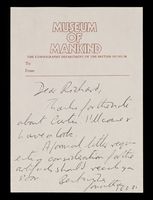 MUSEUM
OF
MANKIND
THE ETHNOGRAPHY DEPARTMENT OF THE BRITISH MUSEUM
To
From
Dear Richard,
Thanks for the note
about Carlin
have a look.
A formal letter requ-
esting consideration for the
artefacts should reach you
soon.